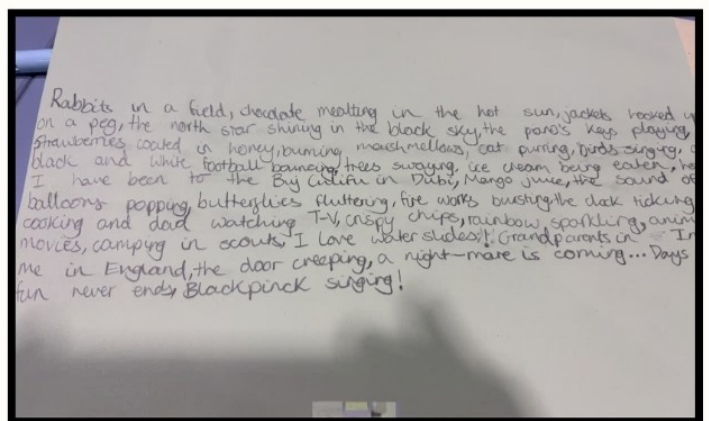 Rabbits in a field, chocolate mealting in the hot sun, jackets hooked u
on a peg, the north star shining in the black sky, the pano's keys playing,
Strawberries coated in honey, burning marshmellows, cat purring, birds singing,
black and white football bouncing, trees swaying, ice cream being eaten, he
I have been to the Burj in Dubi, Mango juice, the sound of
balloons popping, butterflies fluttering, fire works bursting, the clok ticking
cooking and dad watching T-V, crispy chips, rainbow sparkling, anim
movies, camping in scouts, I love water slides,! Grandparents in In
me in England, the door creeping, a night-mare is coming... Days
fun never ends, Blackpinck singing!